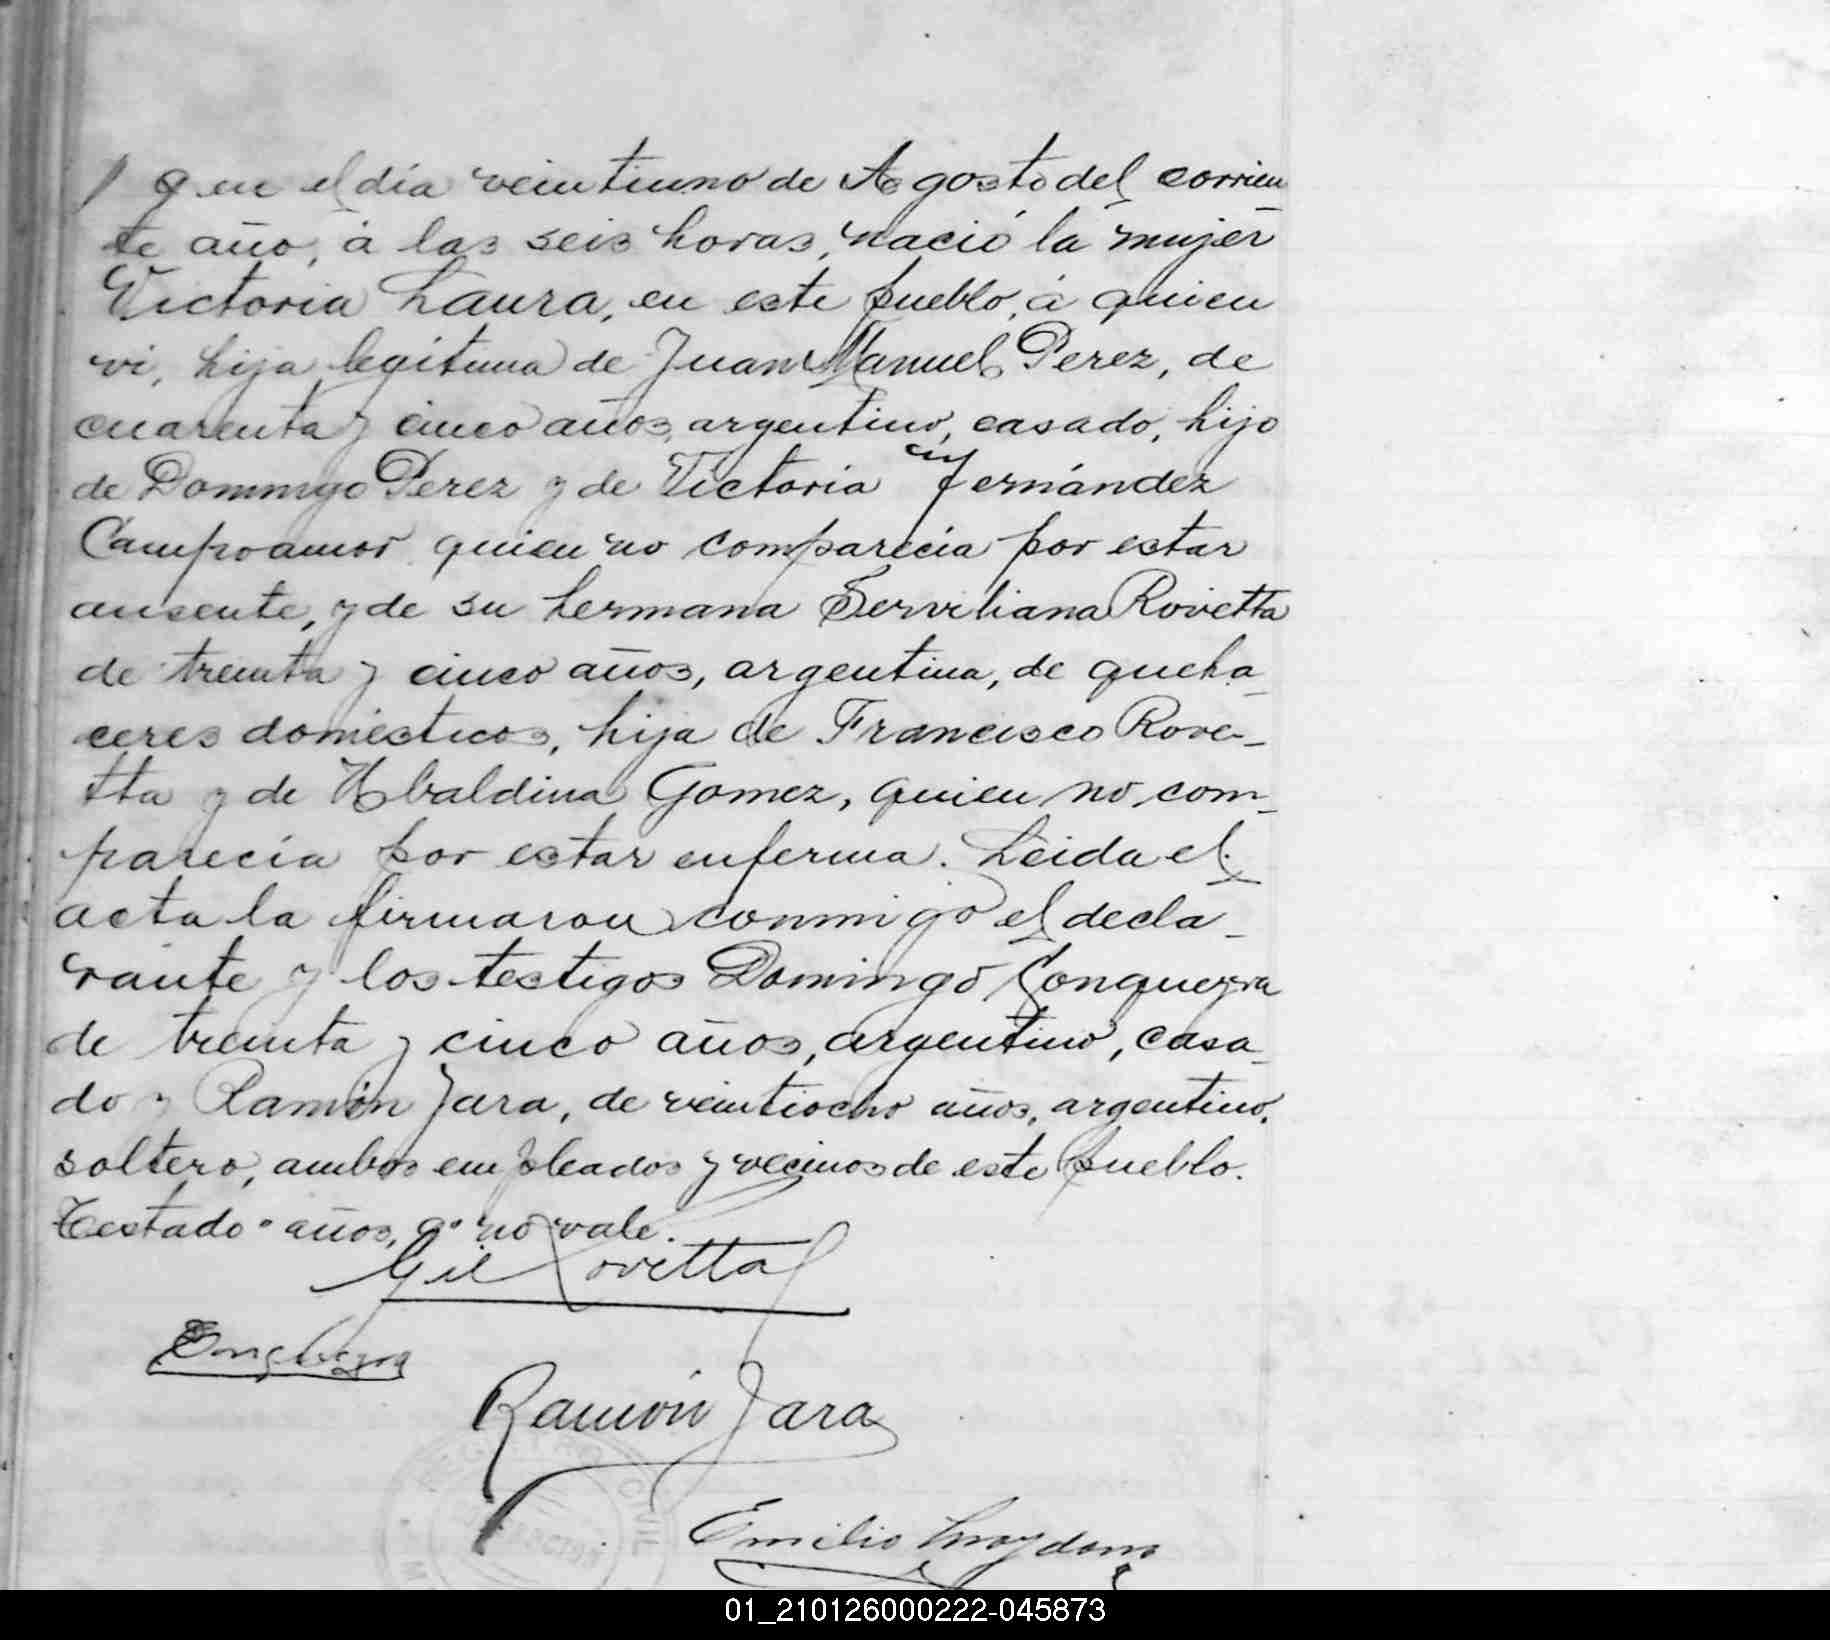 q en el día veintiuno de Agosto del corrien
te año, á las seis horas, nació la mujer
Victoria Laura, en este pueblo, á quien
vi, hija legítima de Juan Manuel Perez, de
cuarenta y cinco años, argentino, casado, hijo
de Domingo Perez y de Victoria Fernández
Campoamor quien no comparecia por estar
ausente, y de su hermana Serviliana Rovetta
de treinta y cinco años, argentina, de queha_
ceres domésticos, hija de Francisco Rove_
tta y de Ubaldina Gomez, quien no com_
parecia por estar enferma. Leida el
acta la firmaron conmigo el decla_
rante y los testigos Domingo Conqueyra
de treinta y cinco años, argentino, casa_
do y Ramón Jara, de veintiocho años, argentino,
soltero, ambos empleados y vecinos de este pueblo.
Testado "años, q" no vale.
Gil Rovetta
Ramón Jara
Emilio
01_210126000222-045873